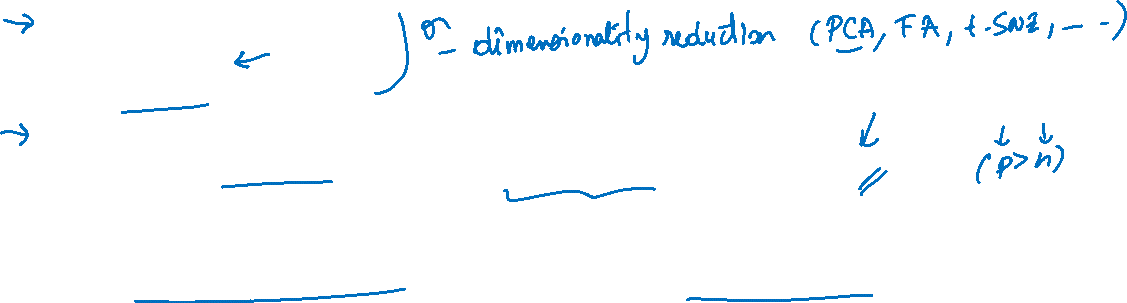 or dimensionality reduction (PCA, FA, t-SNE, - -)
(p>n)